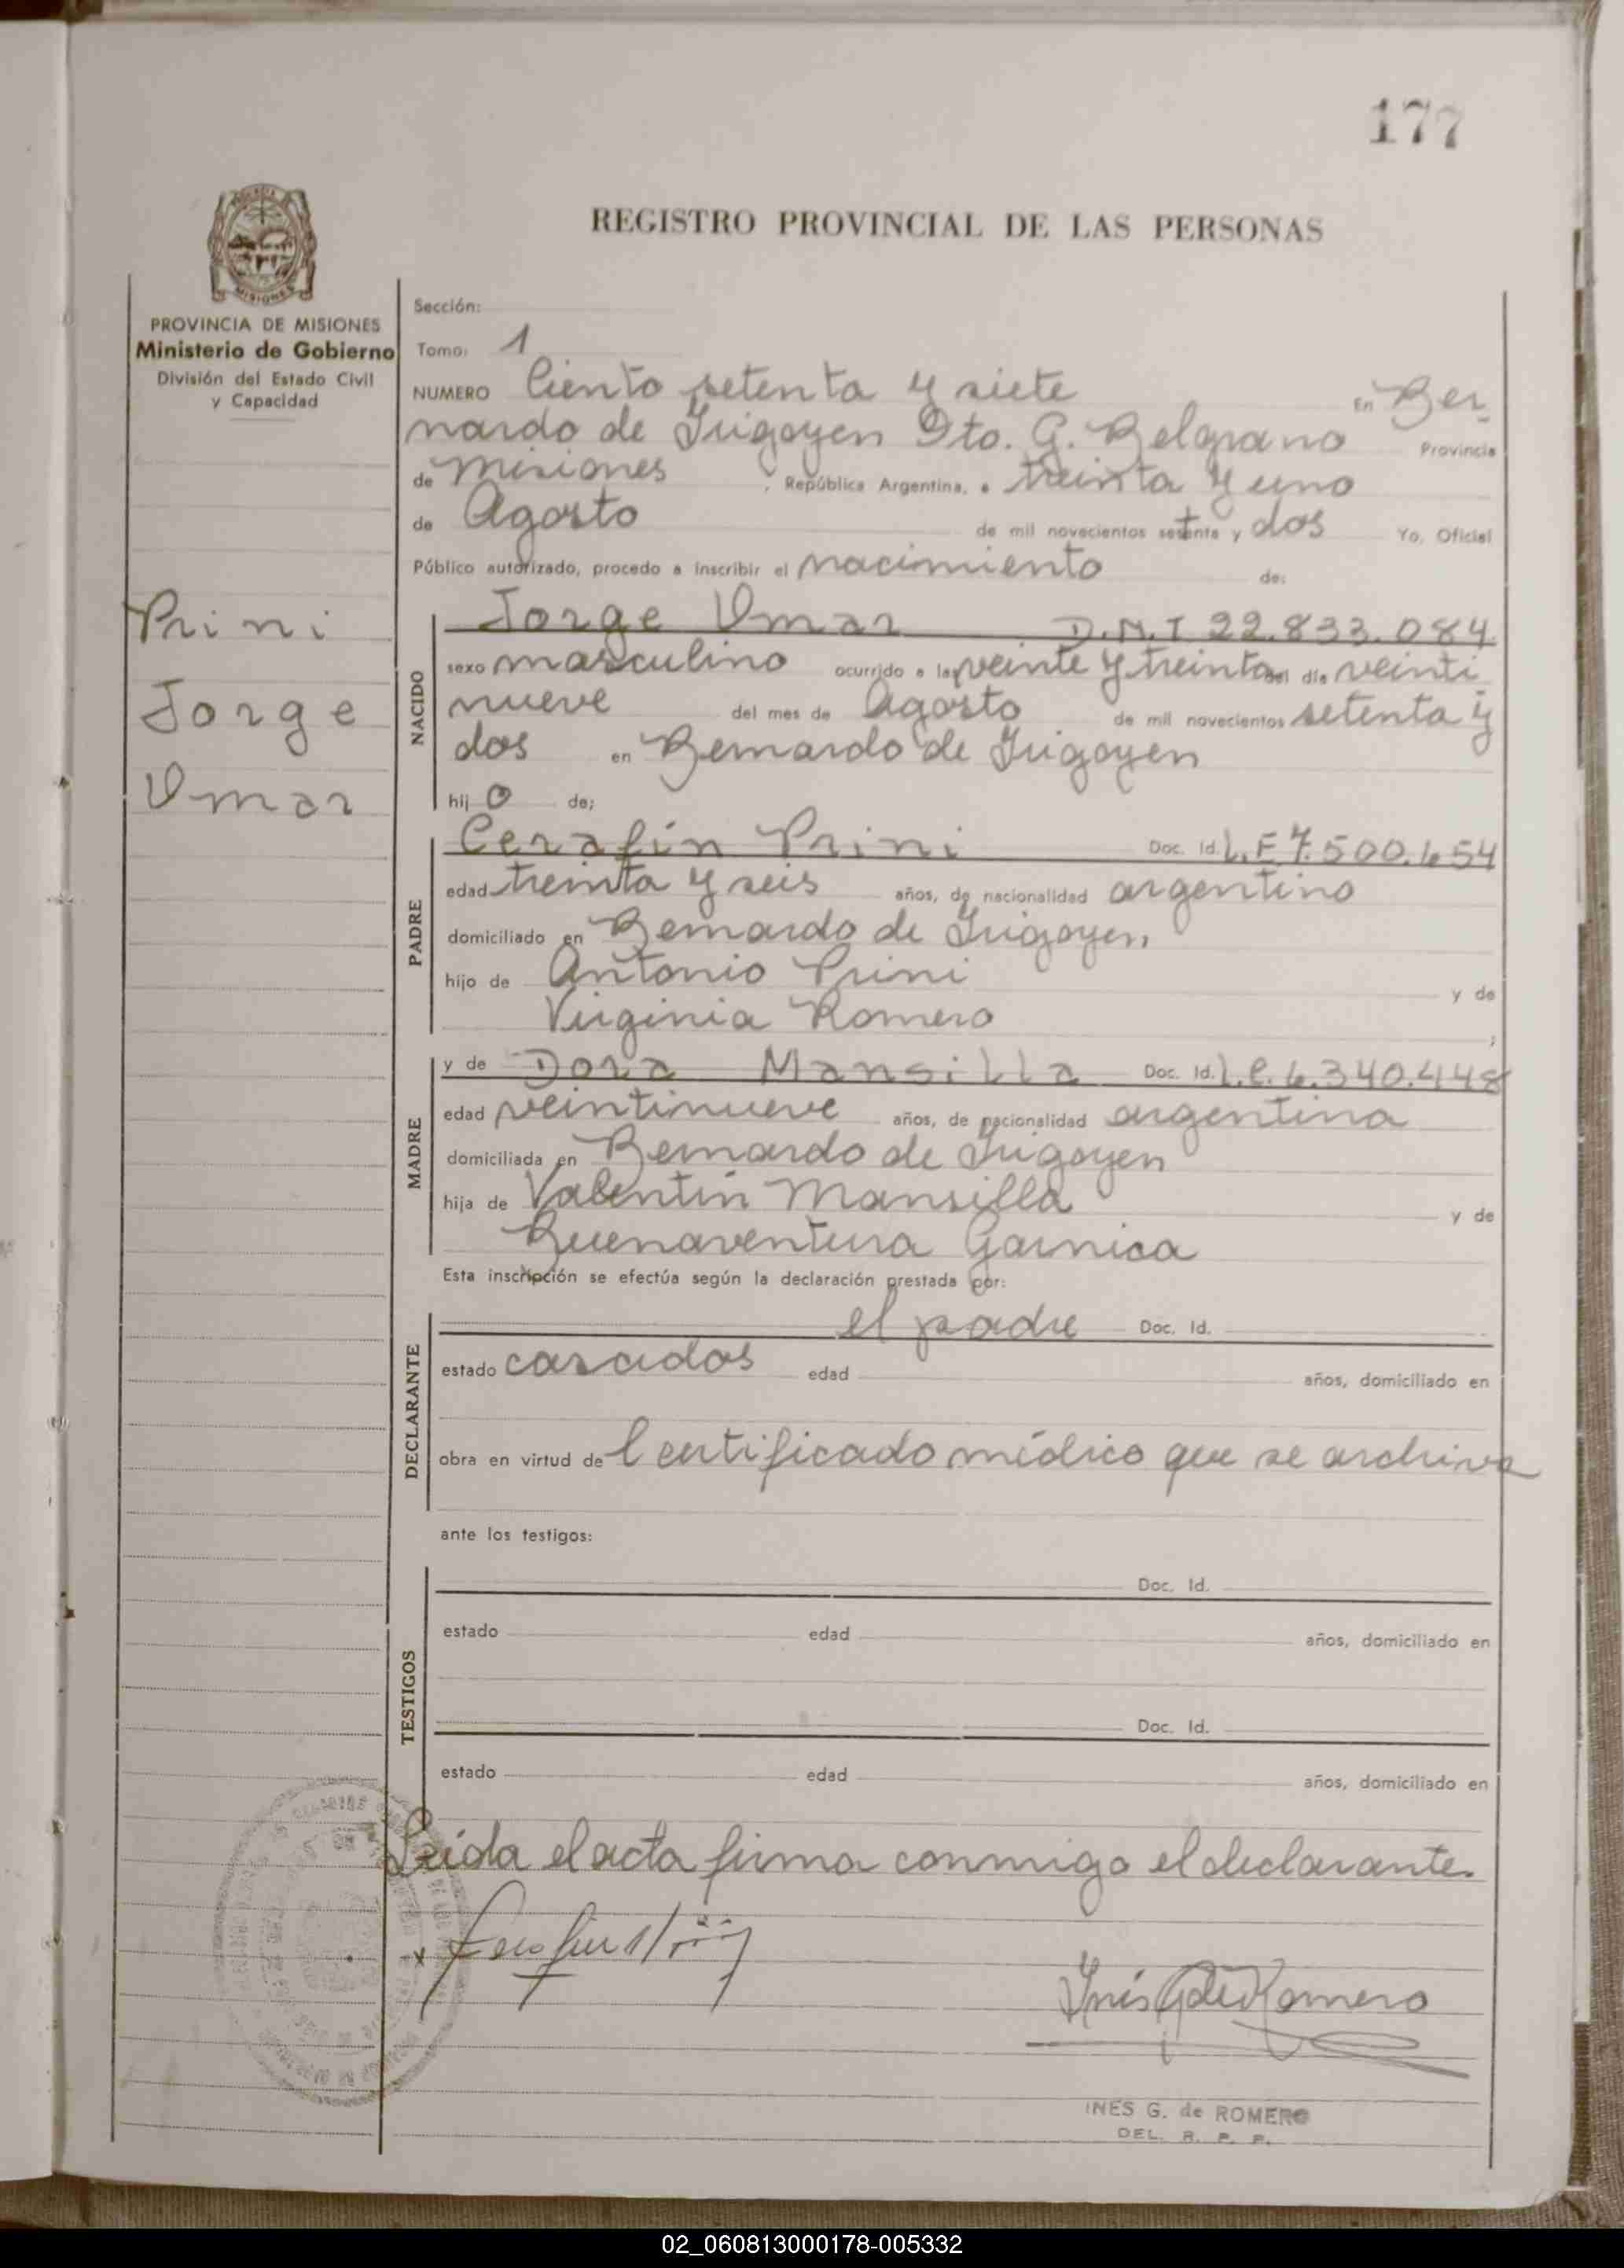 177
REGISTRO PROVINCIAL DE LAS PERSONAS
MISIONES
PROVINCIA DE MISIONES
Ministerio de Gobierno
División del Estado Civil
y Capacidad
Prini
Jorge
Omar
Sección:
Tomo: 1
NUMERO Ciento setenta y siete En Ber-
nardo de Irigoyen Dto. G. Belgrano Provincia
de Misiones, República Argentina, a treinta y uno
de Agosto de mil novecientos setenta y dos Yo, Oficial
Público autorizado, procedo a inscribir el nacimiento de:
NACIDO
Jorge Omar D.N.I 22.833.084
sexo masculino ocurrido a las veinte y treinta del día veinti
nueve del mes de Agosto de mil novecientos setenta y
dos en Bernardo de Irigoyen
hij o de;
PADRE
Cerafín Prini Doc. Id. L.E 7.500.654
edad treinta y seis años, de nacionalidad argentino
domiciliado en Bernardo de Irigoyen,
hijo de Antonio Prini y de
Virginia Romero ;
MADRE
y de Dora Mansilla Doc. Id. L.C. 6.340.448
edad veintinueve años, de nacionalidad argentina
domiciliada en Bernardo de Irigoyen
hija de Valentín Mansilla y de
Buenaventura Garnica
Esta inscripción se efectúa según la declaración prestada por:
DECLARANTE
el padre Doc. Id.
estado casados edad años, domiciliado en
obra en virtud de l certificado médico que se archiva
ante los testigos:
TESTIGOS
Doc. Id.
estado edad años, domiciliado en
Doc. Id.
estado edad años, domiciliado en
Leída el acta firma conmigo el declarante.
x
Inés G de Romero
INES G. de ROMERO
DEL. R. P. P.
02_060813000178-005332